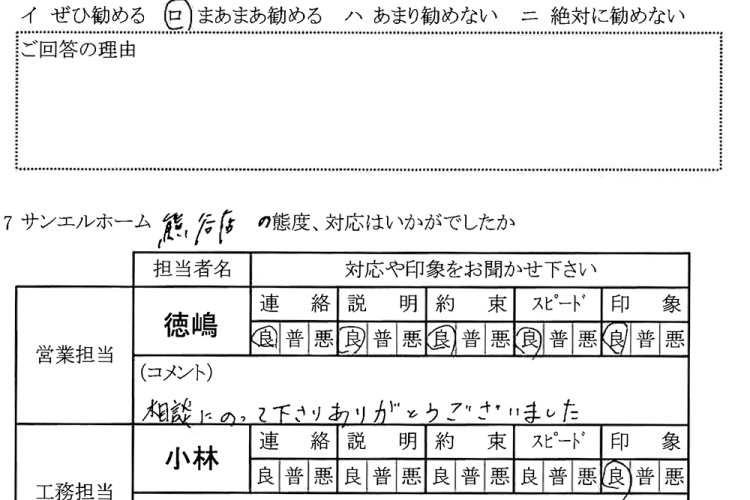 イ ぜひ勧める ロ まあまあ勧める ハ あまり勧めない ニ 絶対に勧めない
ご回答の理由
7 サンエルホーム 熊谷店 の態度、対応はいかがでしたか
担当者名 対応や印象をお聞かせ下さい
営業担当 徳嶋 連絡 説明 約束 スピード 印象
良 普 悪 良 普 悪 良 普 悪 良 普 悪 良 普 悪
(コメント)
相談にのって下さりありがとうございました
工務担当 小林 連絡 説明 約束 スピード 印象
良 普 悪 良 普 悪 良 普 悪 良 普 悪 良 普 悪